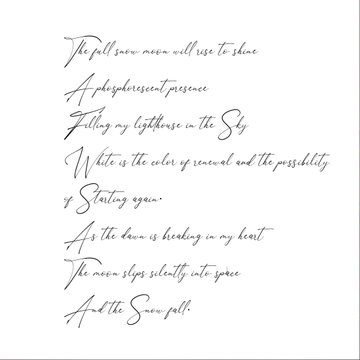 The full snow moon will rise to shine
A phosphorescent presence
Filling my lighthouse in the Sky
White is the color of renewal and the possibility
of Starting again.
As the dawn is breaking in my heart
The moon slips silently into space
And the Snow fall.